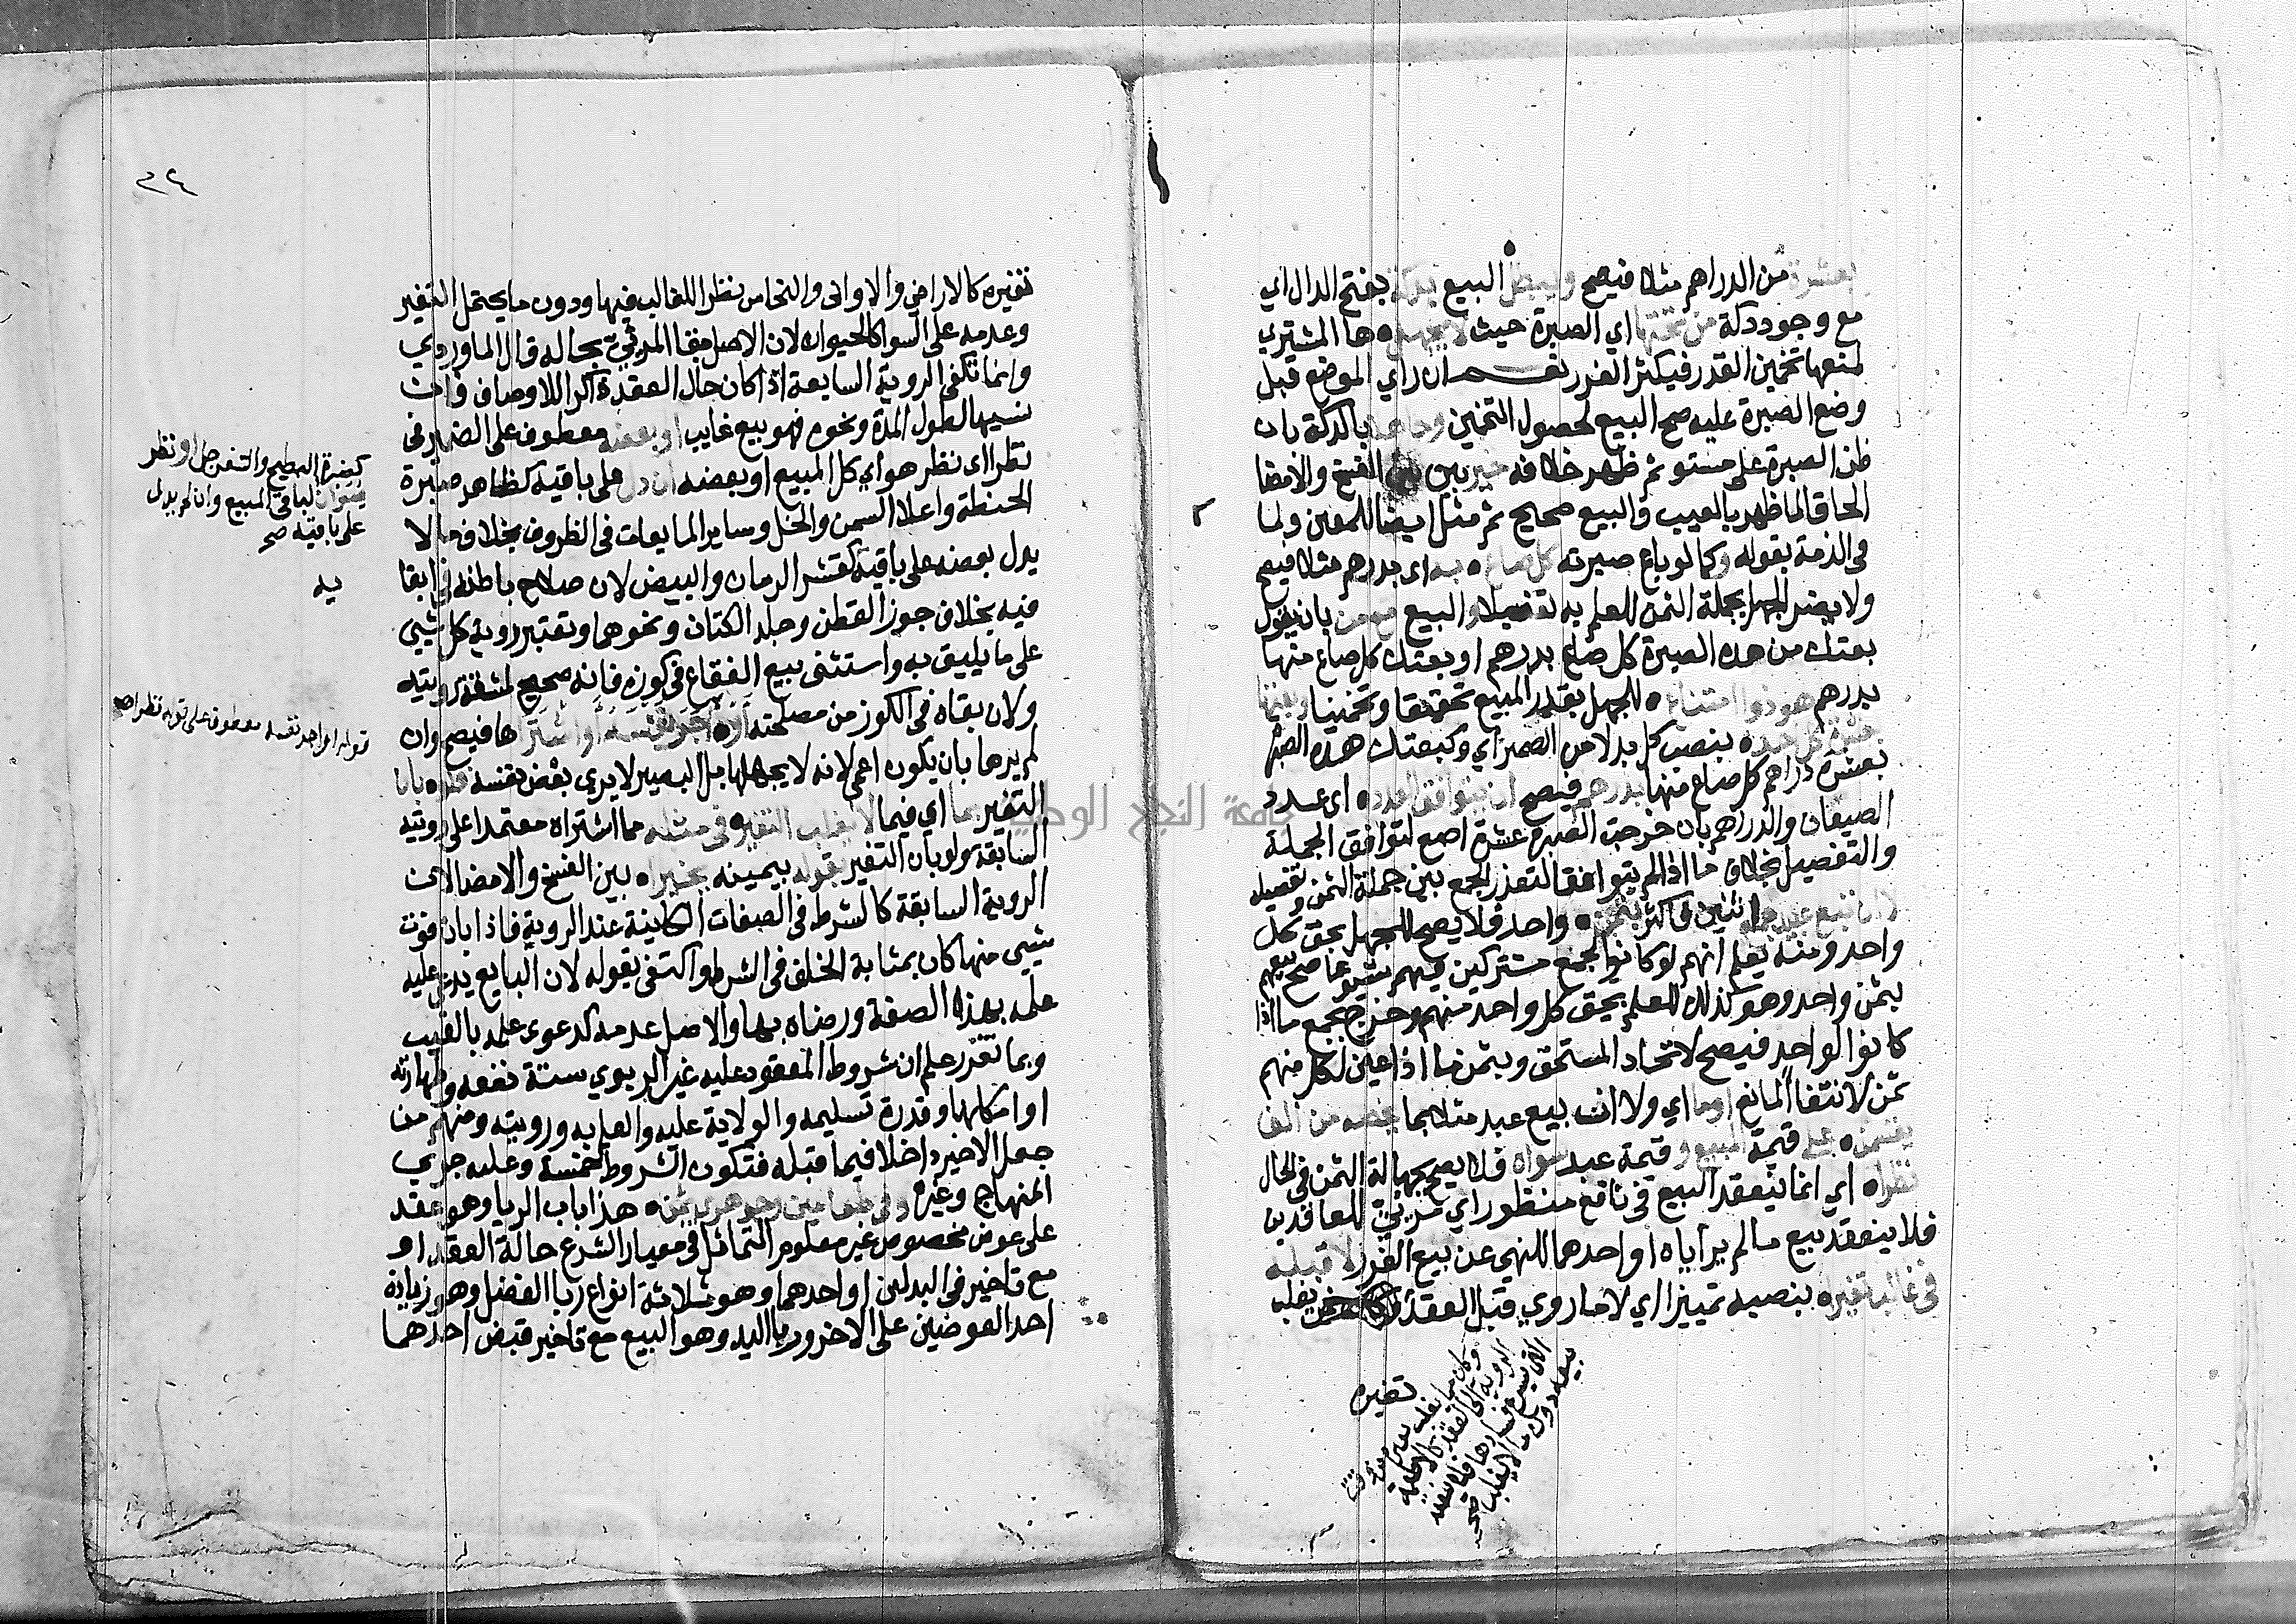 بعشرة من الدراهم مثلا فيصح ويبطل البيع بدكة بفتح الدال اي
مع وجود دكة من تحتها اي الصبرة حيث لا يجهلها المشتري
لمنعها تخمين القدر فيكثر الغرر نعم ان راي الموضع قبل
وضع الصبرة عليه صح البيع لحصول التخمين وجاهل بالدكة بان
ظن الصبرة على مستو ثم ظهر خلافه خير بين الفسخ والامضا
الحاقا لما ظهر بالعيب والبيع صحيح ثم مثل ايضا للمعين ولما
في الذمة بقوله وكما لو باع صبرته كل صاع به اى بدرهم مثلا فيصح
ولا يضر الجهل بجملة الثمن للعلم به تفصيلا والبيع من بان يقول
بعتك من هده الصبرة كل صاع بدرهم او بعتك كل صاع منها
بدرهم هو ذو امتناع للجهل بقدر المبيع تحقيقا وتخمينا وبعتها
بعشرة كل بنصب كل بدلا من الضمير اي وكبعتك هده الصبرة
بعشرة دراهم كل صاع منها بدرهم فيصح ان توافق العدد اى عدد
الصيعان والدراهم بان خرجت الصبرة عشرة اصع لتوافق الجملة
والتفصيل بخلاف ما اذا لم يتوافقا لتعذر الجمع بين جملة الثمن وتفصيله
لا ان تبيع عبد جمع اثنين فاكثر بثمن واحد فلا يصح للجهل بحق كل
واحد ومنه يعلم انهم لو كانوا لجمع مشتركين فيهم شيوعا صح بيعهم
بثمن واحد وهو كذلك للعلم بحق كل واحد منهم وخرج بجمع ما اذا
كانوا لواحد فيصح لاتحاد المستحق وبثمن ما اذا عين لكل منهم
ثمن لانتفا المانع اوما اي ولا انت بيع عبد مثلا بما يخصه من الف
بقسمه على قيمة المبيع وقيمة عبد سواه فلا يصح لجهالة الثمن في الحال
نظراه اي انما ينعقد البيع في نافع منظور اي مرئي للعاقدين
فلا ينعقد بيع ما لم يراياه او احدهما للنهي عن بيع الغرر لا قبله
في غالب تغيراه بنصبه تمييزا اي لا ما روي قبل العقد يغلب
تغيره
وكان مما يغلب تغيره من وقت
الروية الى العقد كالاطعمة
التي يسرع فسادها فلا ينعقد
بيعه دون ما لا يغلب صح
٢٤
تغيره كالاراضي والاواني والنحاس نظرا للغالب فيها ودون ما يحتمل التغير
وعدمه على السوا كالحيوان لان الاصل بقا المرئي بحاله قال الماوردي
وانما تكفي الروية السابقة اذا كان حال العقد ذاكرا للاوصاف فان
نسيها لطول المدة ونحوه فهو بيع غايب او بعضه معطوف على الضمير في
نظرا اى نظر هو اي كل المبيع او بعضه ان دل على باقيه كظاهر صبرة
الحنطة واعلا السمن والخل وساير المايعات في الظروف بخلاف ما لا
يدل بعضه على باقيه كقشر الرمان والبيض لان صلاح باطنه في ابقا
فيه بخلاف جوز القطن وجلد الكتان ونحوهما وتعتبر روية كل شيي
على ما يليق به واستثنى بيع الفقاع في كوزه فانه صحيح لمشقة رويته
ولان بقاه في الكوز من مصلحته او اجر نفسه او اشتراها فيصح وان
لم يرها بان يكون اعمى لانه لا يجهلها بل البصير لا يرى بعض نفسه بابا
التغير بما اي فيما لا يغلب التغير في مثله مما اشتراه معتمدا على رويته
السابقة ولو بان التغير بقوله بيمينه بخيراه بين الفسخ والامضا لان
الروية السابقة كالشرط في الصفات الكاينة عند الروية فاذا بان فوت
شيى منها كان بمثابة الخلف في الشرط واكتفى بقوله لان البايع يدعي عليه
علمه بهذه الصفة ورضاه بها والاصل عدمه كدعوى علمه بالعيب
وبما تقرر علم ان شروط المعقود عليه غير الربوي ستة نفعه وطهارته
او امكانها وقدرة تسليمه والولاية عليه والعلم به ورويته ومنهم من
جعل الاخير داخلا فيما قبله فتكون الشروط خمسة وعليه جرى
المنهاج وغيره وفي طعامين وجوهري ثمن هذا باب الربا وهو عقد
على عوض مخصوص غير معلوم التماثل في معيار الشرع حالة العقد او
مع تاخير في البدلين او احدهما وهو ثلاثة انواع ربا الفضل وهو زيادة
احد العوضين على الاخر وربا اليد وهو البيع مع تاخير قبض احدهما
او نظر
الباقي المبيع وان لم يدل
على باقيه صح
به
قوله او اجر نفسه معطوف على قوله نظر اهـ
جامعة النجاح الوطنية